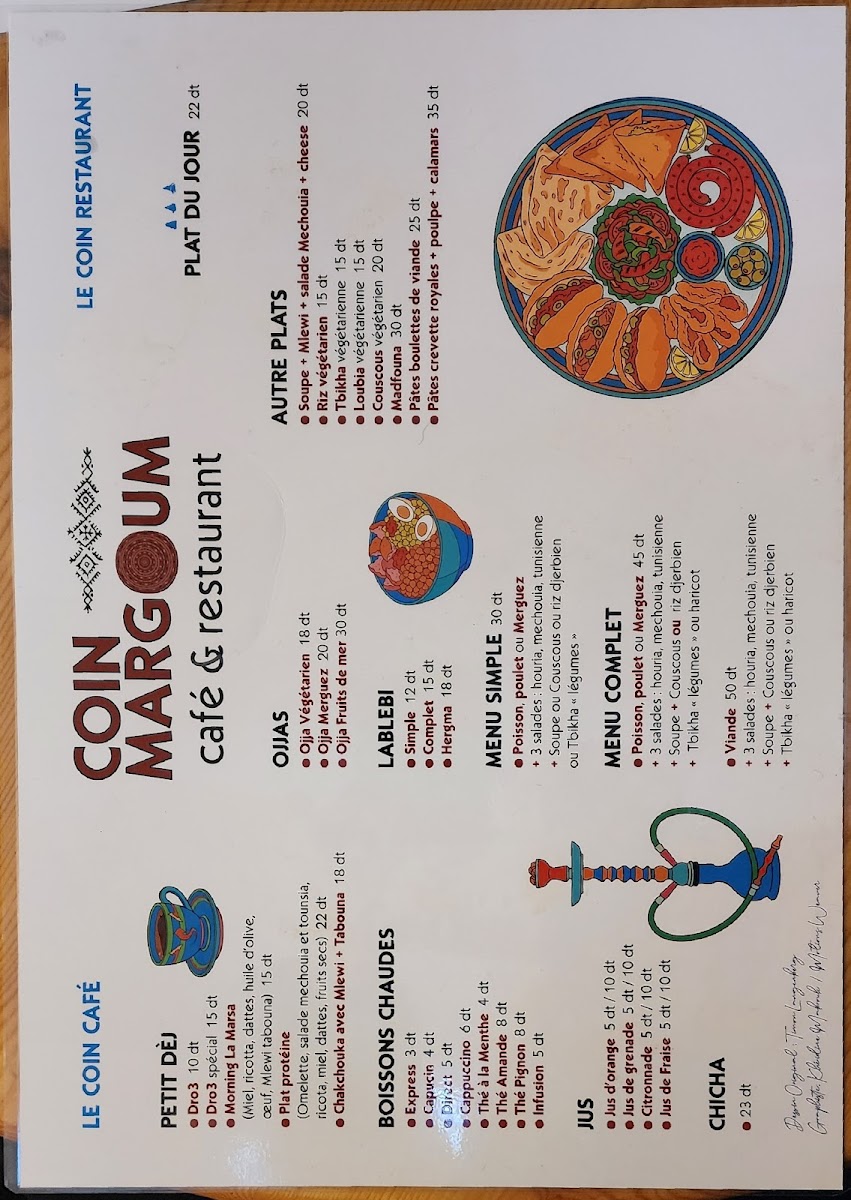 LE COIN CAFÉ
PETIT DÈJ
• Dro3 10 dt
• Dro3 spécial 15 dt
• Morning La Marsa
(Miel, ricotta, dattes, huile d'olive,
œuf, Mlewi tabouna) 15 dt
• Plat protéine
(Omelette, salade mechouia et tounsia,
ricota, miel, dattes, fruits secs) 22 dt
• Chakchouka avec Mlewi + Tabouna 18 dt
BOISSONS CHAUDES
• Express 3 dt
• Capucin 4 dt
• Direct 5 dt
• Cappuccino 6 dt
• Thé à la Menthe 4 dt
• Thé Amande 8 dt
• Thé Pignon 8 dt
• Infusion 5 dt
JUS
• Jus d'orange 5 dt / 10 dt
• Jus de grenade 5 dt / 10 dt
• Citronnade 5 dt / 10 dt
• Jus de Fraise 5 dt / 10 dt
CHICHA
• 23 dt
COIN
MARGOUM
café & restaurant
OJJAS
• Ojja Végétarien 18 dt
• Ojja Merguez 20 dt
• Ojja Fruits de mer 30 dt
LABLEBI
• Simple 12 dt
• Complet 15 dt
• Hergma 18 dt
MENU SIMPLE 30 dt
• Poisson, poulet ou Merguez
+ 3 salades : houria, mechouia, tunisienne
+ Soupe ou Couscous ou riz djerbien
ou Tbikha « légumes »
MENU COMPLET
• Poisson, poulet ou Merguez 45 dt
+ 3 salades : houria, mechouia, tunisienne
+ Soupe + Couscous ou riz djerbien
+ Tbikha « légumes » ou haricot
• Viande 50 dt
+ 3 salades : houria, mechouia, tunisienne
+ Soupe + Couscous ou riz djerbien
+ Tbikha « légumes » ou haricot
LE COIN RESTAURANT
PLAT DU JOUR 22 dt
AUTRE PLATS
• Soupe + Mlewi + salade Mechouia + cheese 20 dt
• Riz végétarien 15 dt
• Tbikha végétarienne 15 dt
• Loubia végétarienne 15 dt
• Couscous végétarien 20 dt
• Madfouna 30 dt
• Pâtes boulettes de viande 25 dt
• Pâtes crevette royales + poulpe + calamars 35 dt
Dessin Original :